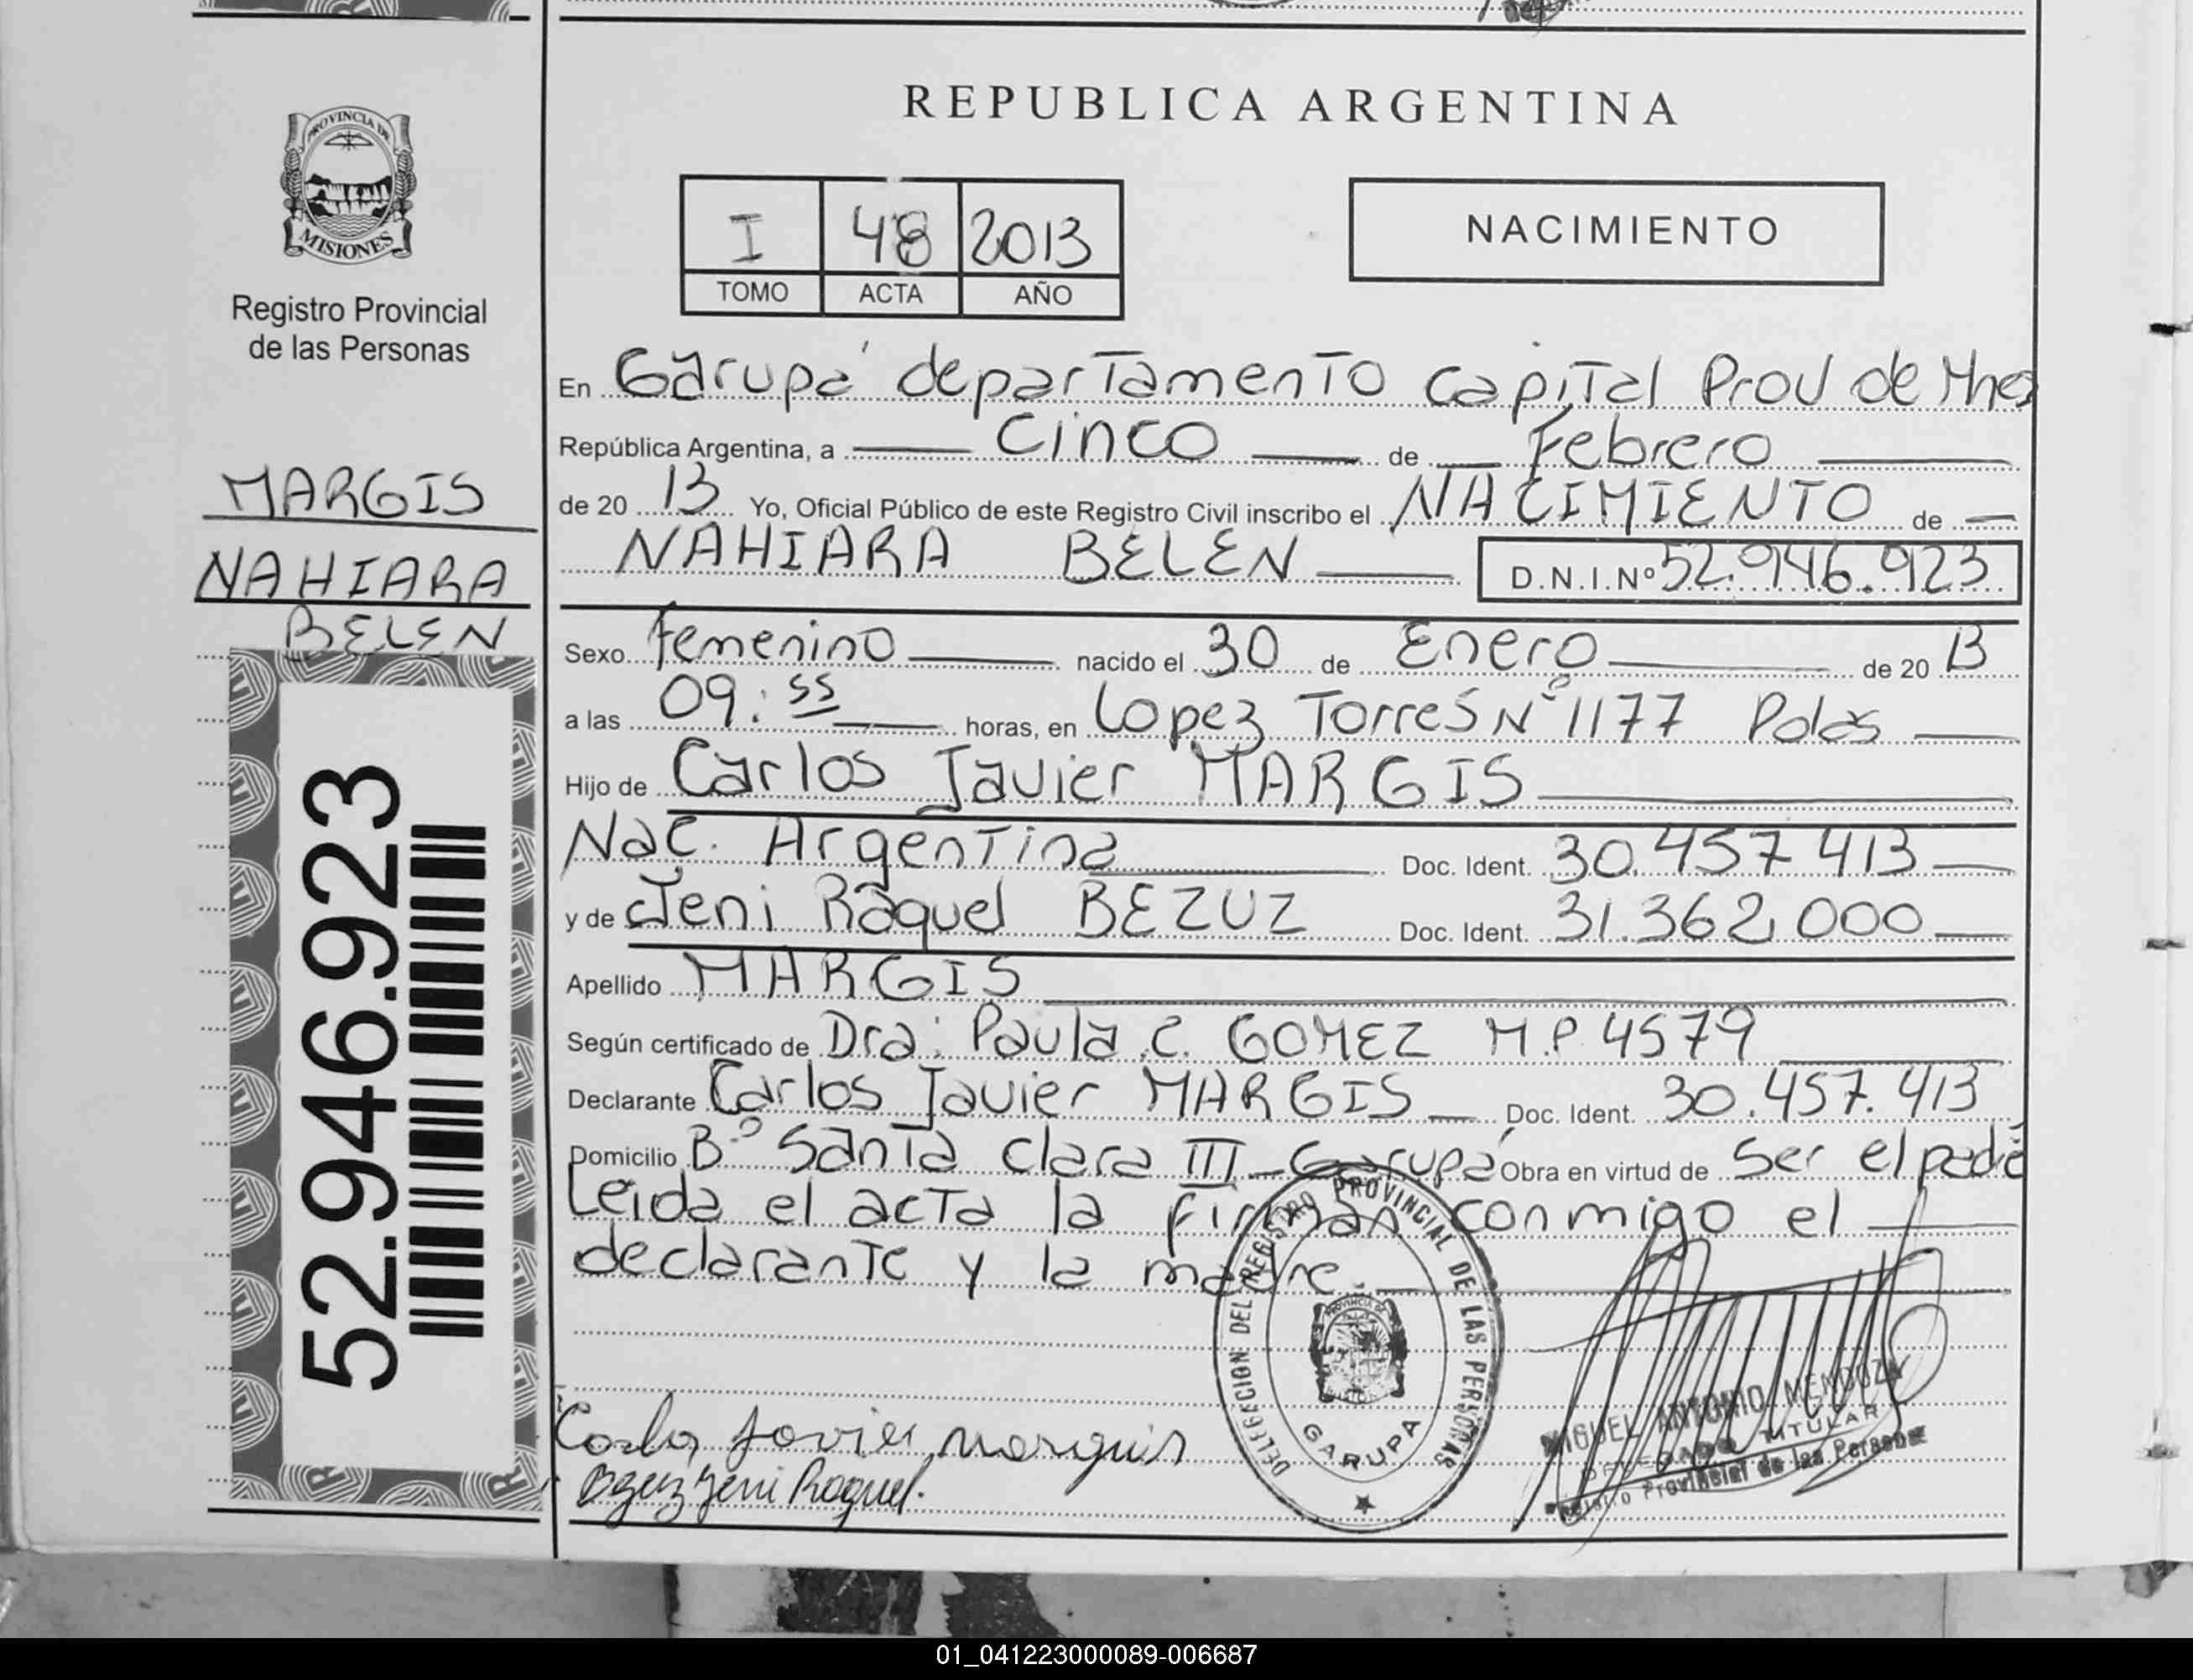 REPUBLICA ARGENTINA
PROVINCIA DE
MISIONES
Registro Provincial
de las Personas
I 48 2013
TOMO ACTA AÑO
NACIMIENTO
MARGIS
NAHIARA
BELEN
52.946.923
En Garupá departamento Capital Prov de Mnes
República Argentina, a cinco de Febrero
de 20 13 Yo, Oficial Público de este Registro Civil inscribo el NACIMIENTO de
NAHIARA BELEN D.N.I.Nº 52.946.923
Sexo Femenino nacido el 30 de Enero de 20 13
a las 09:55 horas, en Lopez Torres Nº 1177 Pdas
Hijo de Carlos Javier MARGIS
Nac. Argentina Doc. Ident. 30.457 413
y de Jeni Raquel BEZUZ Doc. Ident. 31.362.000
Apellido MARGIS
Según certificado de Dra: Paula C. GOMEZ M.P. 4579
Declarante Carlos Javier MARGIS Doc. Ident. 30.457.413
Domicilio Bº Santa Clara III Garupá Obra en virtud de Ser el padre
Leida el acta la firman conmigo el
declarante y la madre.
DELEGACION DEL REGISTRO PROVINCIAL DE LAS PERSONAS
GARUPA
Javier
Jeni Raquel.
MIGUEL ANTONIO MENDOZA
DELEGADO TITULAR
Registro Provincial de las Personas
01_041223000089-006687